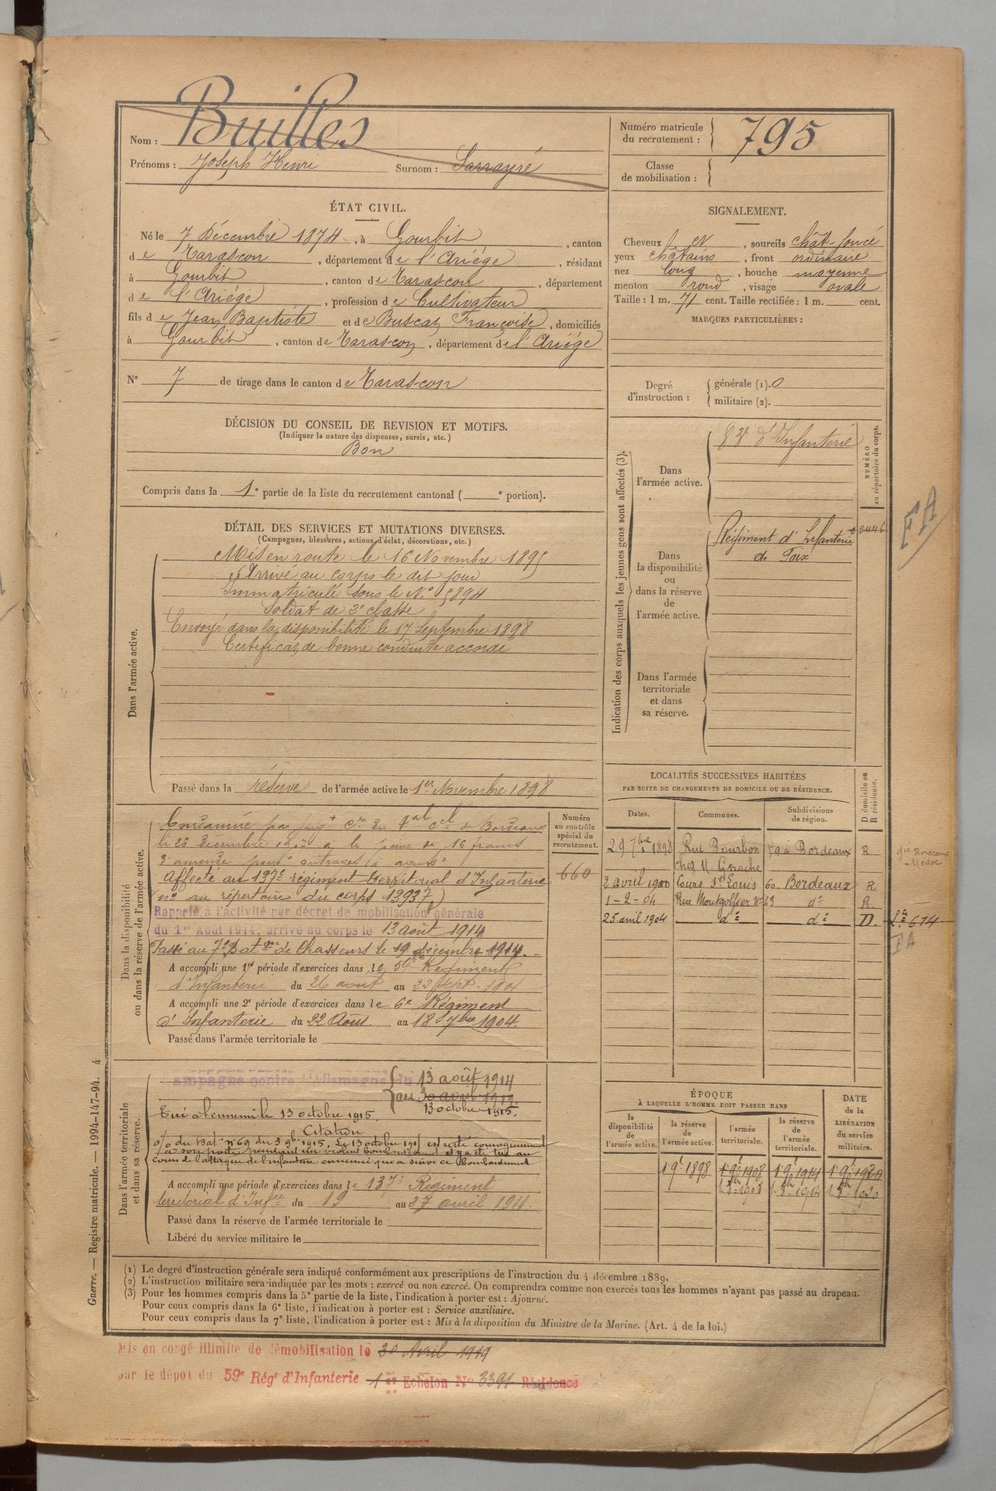 Nom : Builles
Prénoms : Joseph Henri Surnom : Sarrayré
Numéro matricule du recrutement : 795
Classe de mobilisation :
ÉTAT CIVIL.
Né le 7 Décembre 1874, à Gourbit, canton
de Tarascon, département de l'Ariége, résidant
à Gourbit, canton de Tarascon, département
de l'Ariége, profession de Cultivateur
fils de Jean Baptiste et de Buscaz Françoise, domiciliés
à Gourbit, canton de Tarascon, département de l'Ariége
N° 7 de tirage dans le canton de Tarascon
SIGNALEMENT.
Cheveux, sourcils chât. foncé
yeux châtains, front ordinaire
nez long, bouche moyenne
menton rond, visage ovale
Taille : 1 m. 71 cent. Taille rectifiée : 1 m. cent.
MARQUES PARTICULIÈRES :
Degré d'instruction : générale (1). 0
militaire (2).
DÉCISION DU CONSEIL DE REVISION ET MOTIFS.
(Indiquer la nature des dispenses, sursis, etc.)
Bon
Compris dans la 1e partie de la liste du recrutement cantonal ( e portion).
DÉTAIL DES SERVICES ET MUTATIONS DIVERSES.
(Campagnes, blessures, actions d'éclat, décorations, etc.)
Dans l'armée active.
Mis en route le 16 Novembre 1895
Arrivé au corps le dit jour
Immatriculé sous le N° 5894
Soldat de 2e classe
Envoyé dans la disponibilité le 17 Septembre 1898
Certificat de bonne conduite accordé
Passé dans la réserve de l'armée active le 1er Novembre 1898
Indication des corps auxquels les jeunes gens sont affectés (3).
NUMÉRO au répertoire du corps.
Dans l'armée active.
d'Infanterie
Dans la disponibilité ou dans la réserve de l'armée active.
Régiment d'Infanterie
de Foix
Dans l'armée territoriale et dans sa réserve.
EA
LOCALITÉS SUCCESSIVES HABITÉES
PAR SUITE DE CHANGEMENTS DE DOMICILE OU DE RÉSIDENCE.
Dates. Communes. Subdivisions de région. D domicile ou R résidence.
29 7bre 1898 Rue Bourbon Bordeaux R
chez M
2 avril 1900 Cours St Louis 60 Bordeaux R
1-2-04 Rue Montgolfier n° 13 d° R
25 avril 1904 d° d° D
Dans la disponibilité ou dans la réserve de l'armée active.
Numéro au contrôle spécial du recrutement.
660
Condamné par
le Décembre à la peine de 16 francs
d'amende pour outrages à agents
Affecté au 137e régiment Territorial d'Infanterie
(n° au répertoire du corps 13937)
Rappelé à l'activité par décret de mobilisation générale
du 1er Août 1914, arrivé au corps le 13 août 1914
Passé au 7e Bat de Chasseurs le 19 décembre 1914.
A accompli une 1re période d'exercices dans le Régiment
d'Infanterie du 26 août au 22 sept. 1901
A accompli une 2e période d'exercices dans le 6e Régiment
d'Infanterie du 22 Août au 18 7bre 1904
Passé dans l'armée territoriale le
Dans l'armée territoriale et dans sa réserve.
Campagne contre l'Allemagne du 13 août 1914
au 30 avril 1919
13 octobre 1915.
Tué à l'ennemi le 13 octobre 1915.
Citation
o/o du Bat n° 69 du 3 9bre 1915. Le 13 octobre 1915 est resté courageusement
à son poste pendant un violent bombardement et a été tué au
cours de l'attaque de l'infanterie ennemie qui a suivi ce Bombardement
A accompli une période d'exercices dans le 137e Régiment
territorial d'Infie du 19 au 27 avril 1911.
Passé dans la réserve de l'armée territoriale le
Libéré du service militaire le
ÉPOQUE
À LAQUELLE L'HOMME DOIT PASSER DANS
la disponibilité de l'armée active.
la réserve de l'armée active.
l'armée territoriale.
la réserve de l'armée territoriale.
DATE de la LIBÉRATION du service militaire.
1 9bre 1898 1 9bre 1908 1 9bre 1914 1 9bre 1920
Guerre. — Registre matricule. — 1994-147-94. 4
(1) Le degré d'instruction générale sera indiqué conformément aux prescriptions de l'instruction du 4 décembre 1889.
(2) L'instruction militaire sera indiquée par les mots : exercé ou non exercé. On comprendra comme non exercés tous les hommes n'ayant pas passé au drapeau.
(3) Pour les hommes compris dans la 5e partie de la liste, l'indication à porter est : Ajourné.
Pour ceux compris dans la 6e liste, l'indication à porter est : Service auxiliaire.
Pour ceux compris dans la 7e liste, l'indication à porter est : Mis à la disposition du Ministre de la Marine. (Art. 4 de la loi.)
Mis en congé illimité de démobilisation le 30 Avril 1919
par le dépôt du 59e Régt d'Infanterie 1er Echelon N° 3391 Résidence